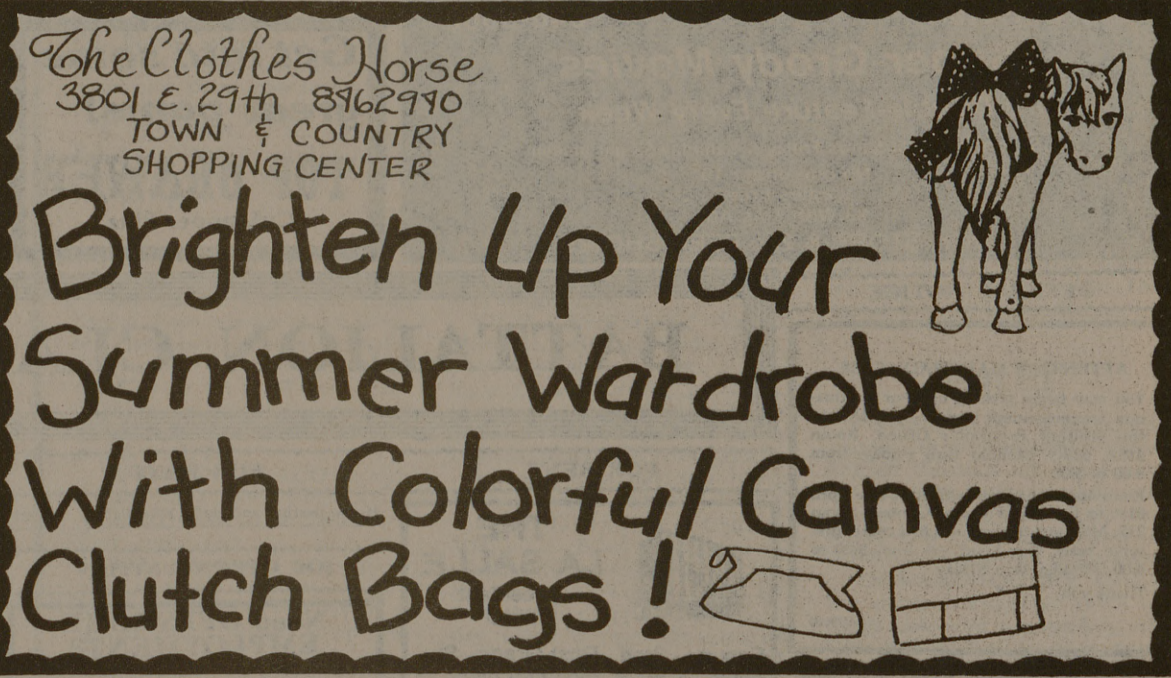 The Clothes Horse
3801 E. 29th 8462940
TOWN & COUNTRY
SHOPPING CENTER
Brighten Up Your
Summer Wardrobe
With Colorful Canvas
Clutch Bags!